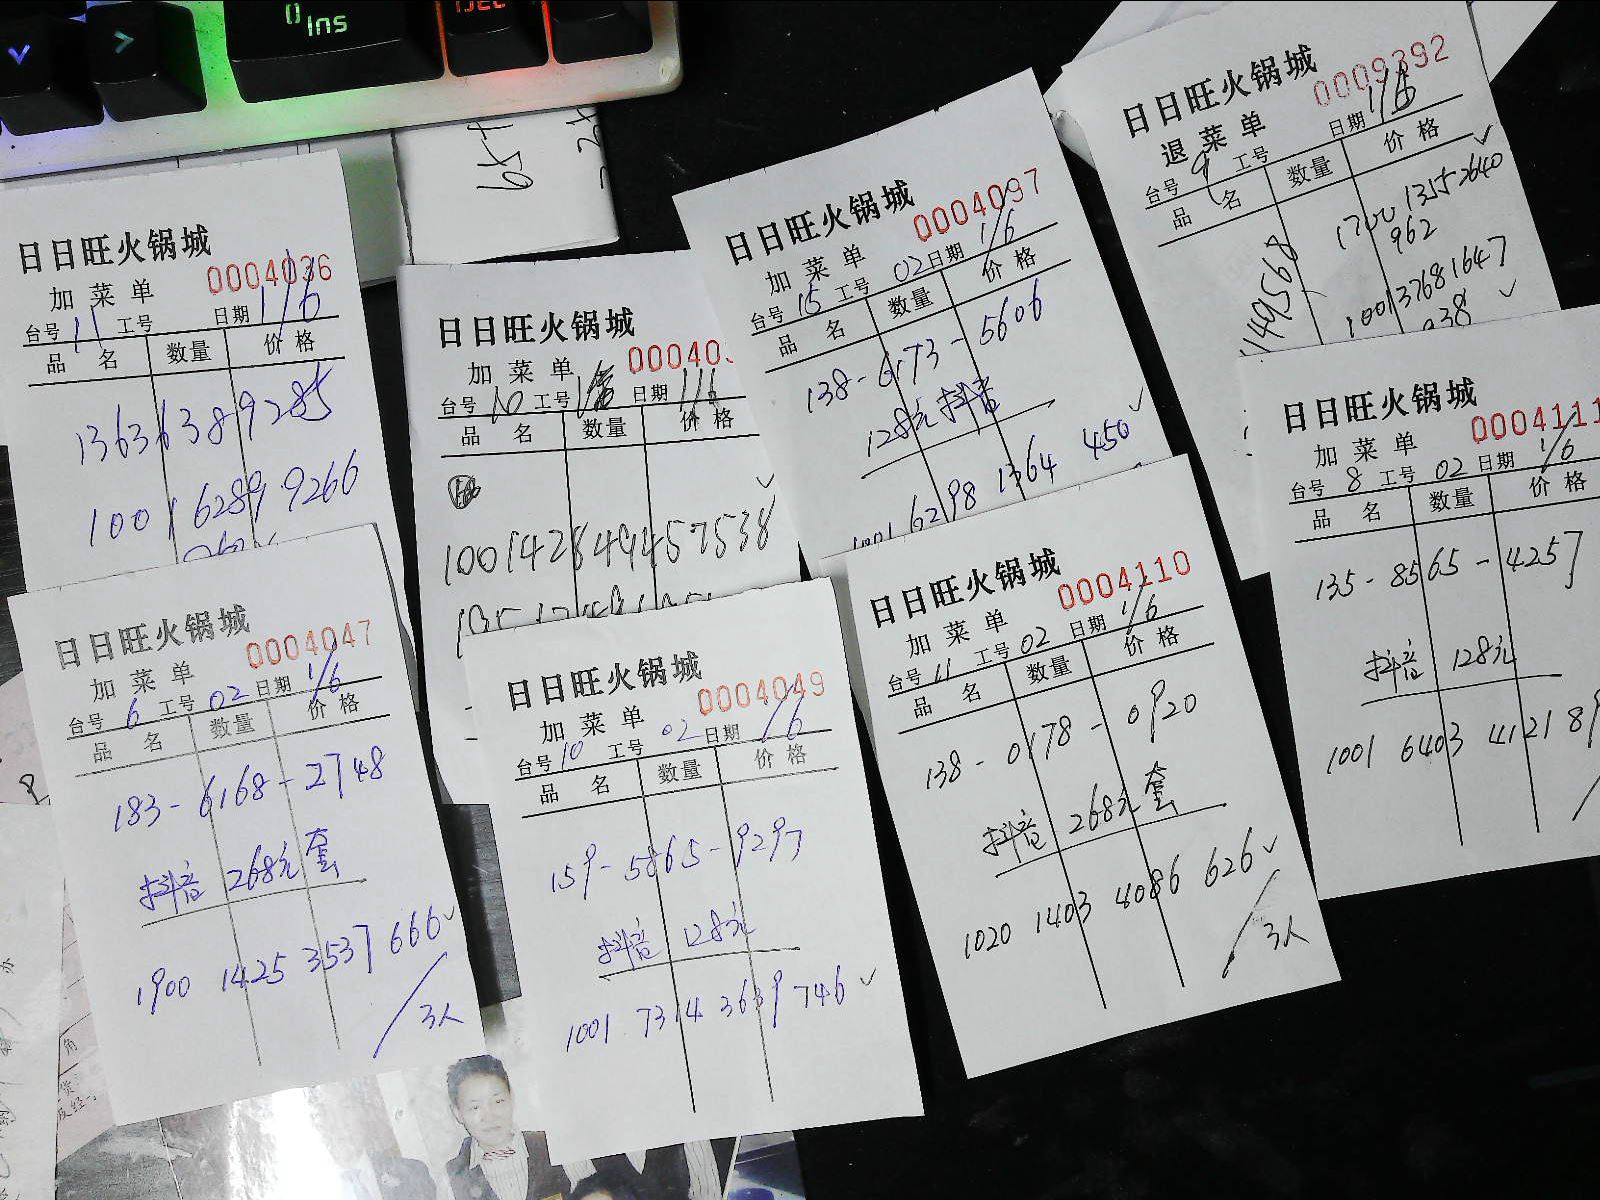 Ins
日日旺火锅城
0004036
加菜单
台号 11 工号 日期 1/6
品名 数量 价格
13636389285
1001 6289 9266
日日旺火锅城
加菜单
台号 10 工号 日期 1/6
品名 数量 价格
1001428494457538
日日旺火锅城
0004097
加菜单
台号 15 工号 02 日期 1/6
品名 数量 价格
138-6173-5606
128元 抖音
1001 6298 1364 450
日日旺火锅城
0009392
退菜单
台号 9 工号 日期 1/6
品名 数量 价格
1700 1355 2640
962
149568
1001 3768 1647
038
日日旺火锅城
加菜单
台号 8 工号 02 日期 1/6
品名 数量 价格
135-8565-4257
抖音 128元
1001 6403 4121 89
日日旺火锅城
0004047
加菜单
台号 6 工号 02 日期 1/6
品名 数量 价格
183-6168-2748
抖音 268元套
1900 1425 3537 666
3人
日日旺火锅城
0004049
加菜单
台号 10 工号 02 日期 1/6
品名 数量 价格
159-5865-9297
抖音 128元
1001 7314 3639 746
日日旺火锅城
0004110
加菜单
台号 11 工号 02 日期 1/6
品名 数量 价格
138-0178-0920
抖音 268元套
1020 1403 4086 626
3人